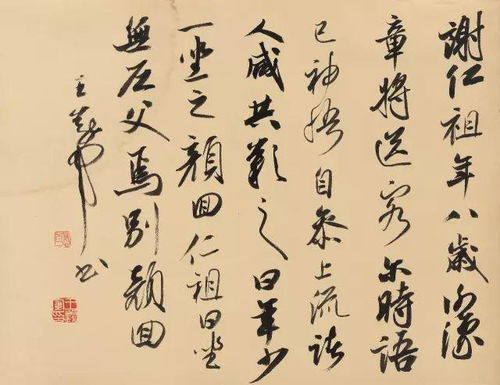 謝仁祖年八歲謝豫
章將送客尔時語
已神悟自參上流諸
人咸共歎之曰年少
一坐之顏回仁祖曰坐
無尼父焉別顏回
王 书